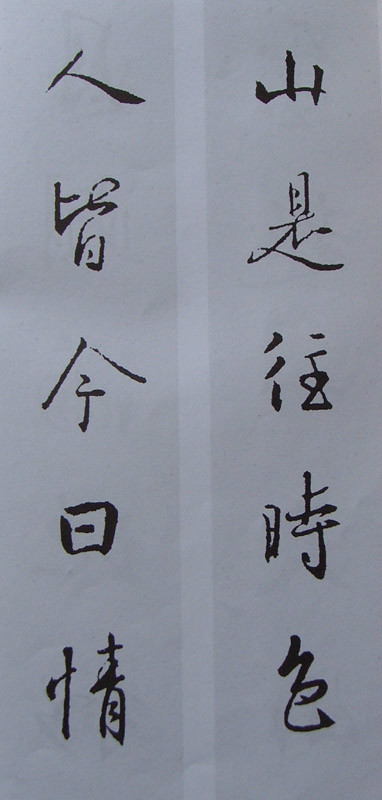 山是往時色
人皆今日情